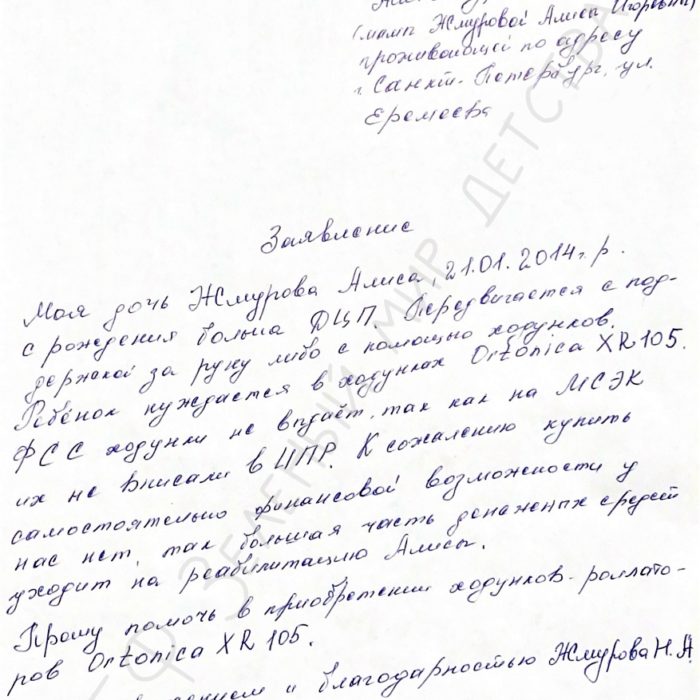 (мамы Жмуровой Алисы Игоревны)
проживающей по адресу
г. Санкт-Петербург, ул.
Еремеева
Заявление
Моя дочь Жмурова Алиса, 21.01.2014 г.р.
с рождения больна ДЦП. Передвигается с под-
держкой за руку либо с помощью ходунков.
Ребёнок нуждается в ходунках Ortonica XR 105.
ФСС ходунки не выдаёт, так как на МСЭК
их не вписали в ИПР. К сожалению купить
самостоятельно финансовой возможности у
нас нет, так большая часть денежных средств
уходит на реабилитацию Алисы.
Прошу помочь в приобретении ходунков-роллато-
ров Ortonica XR 105.
и благодарностью Жмурова Н.А
БФ ЗЕЛЕНЫЙ МИР ДЕТСТВА